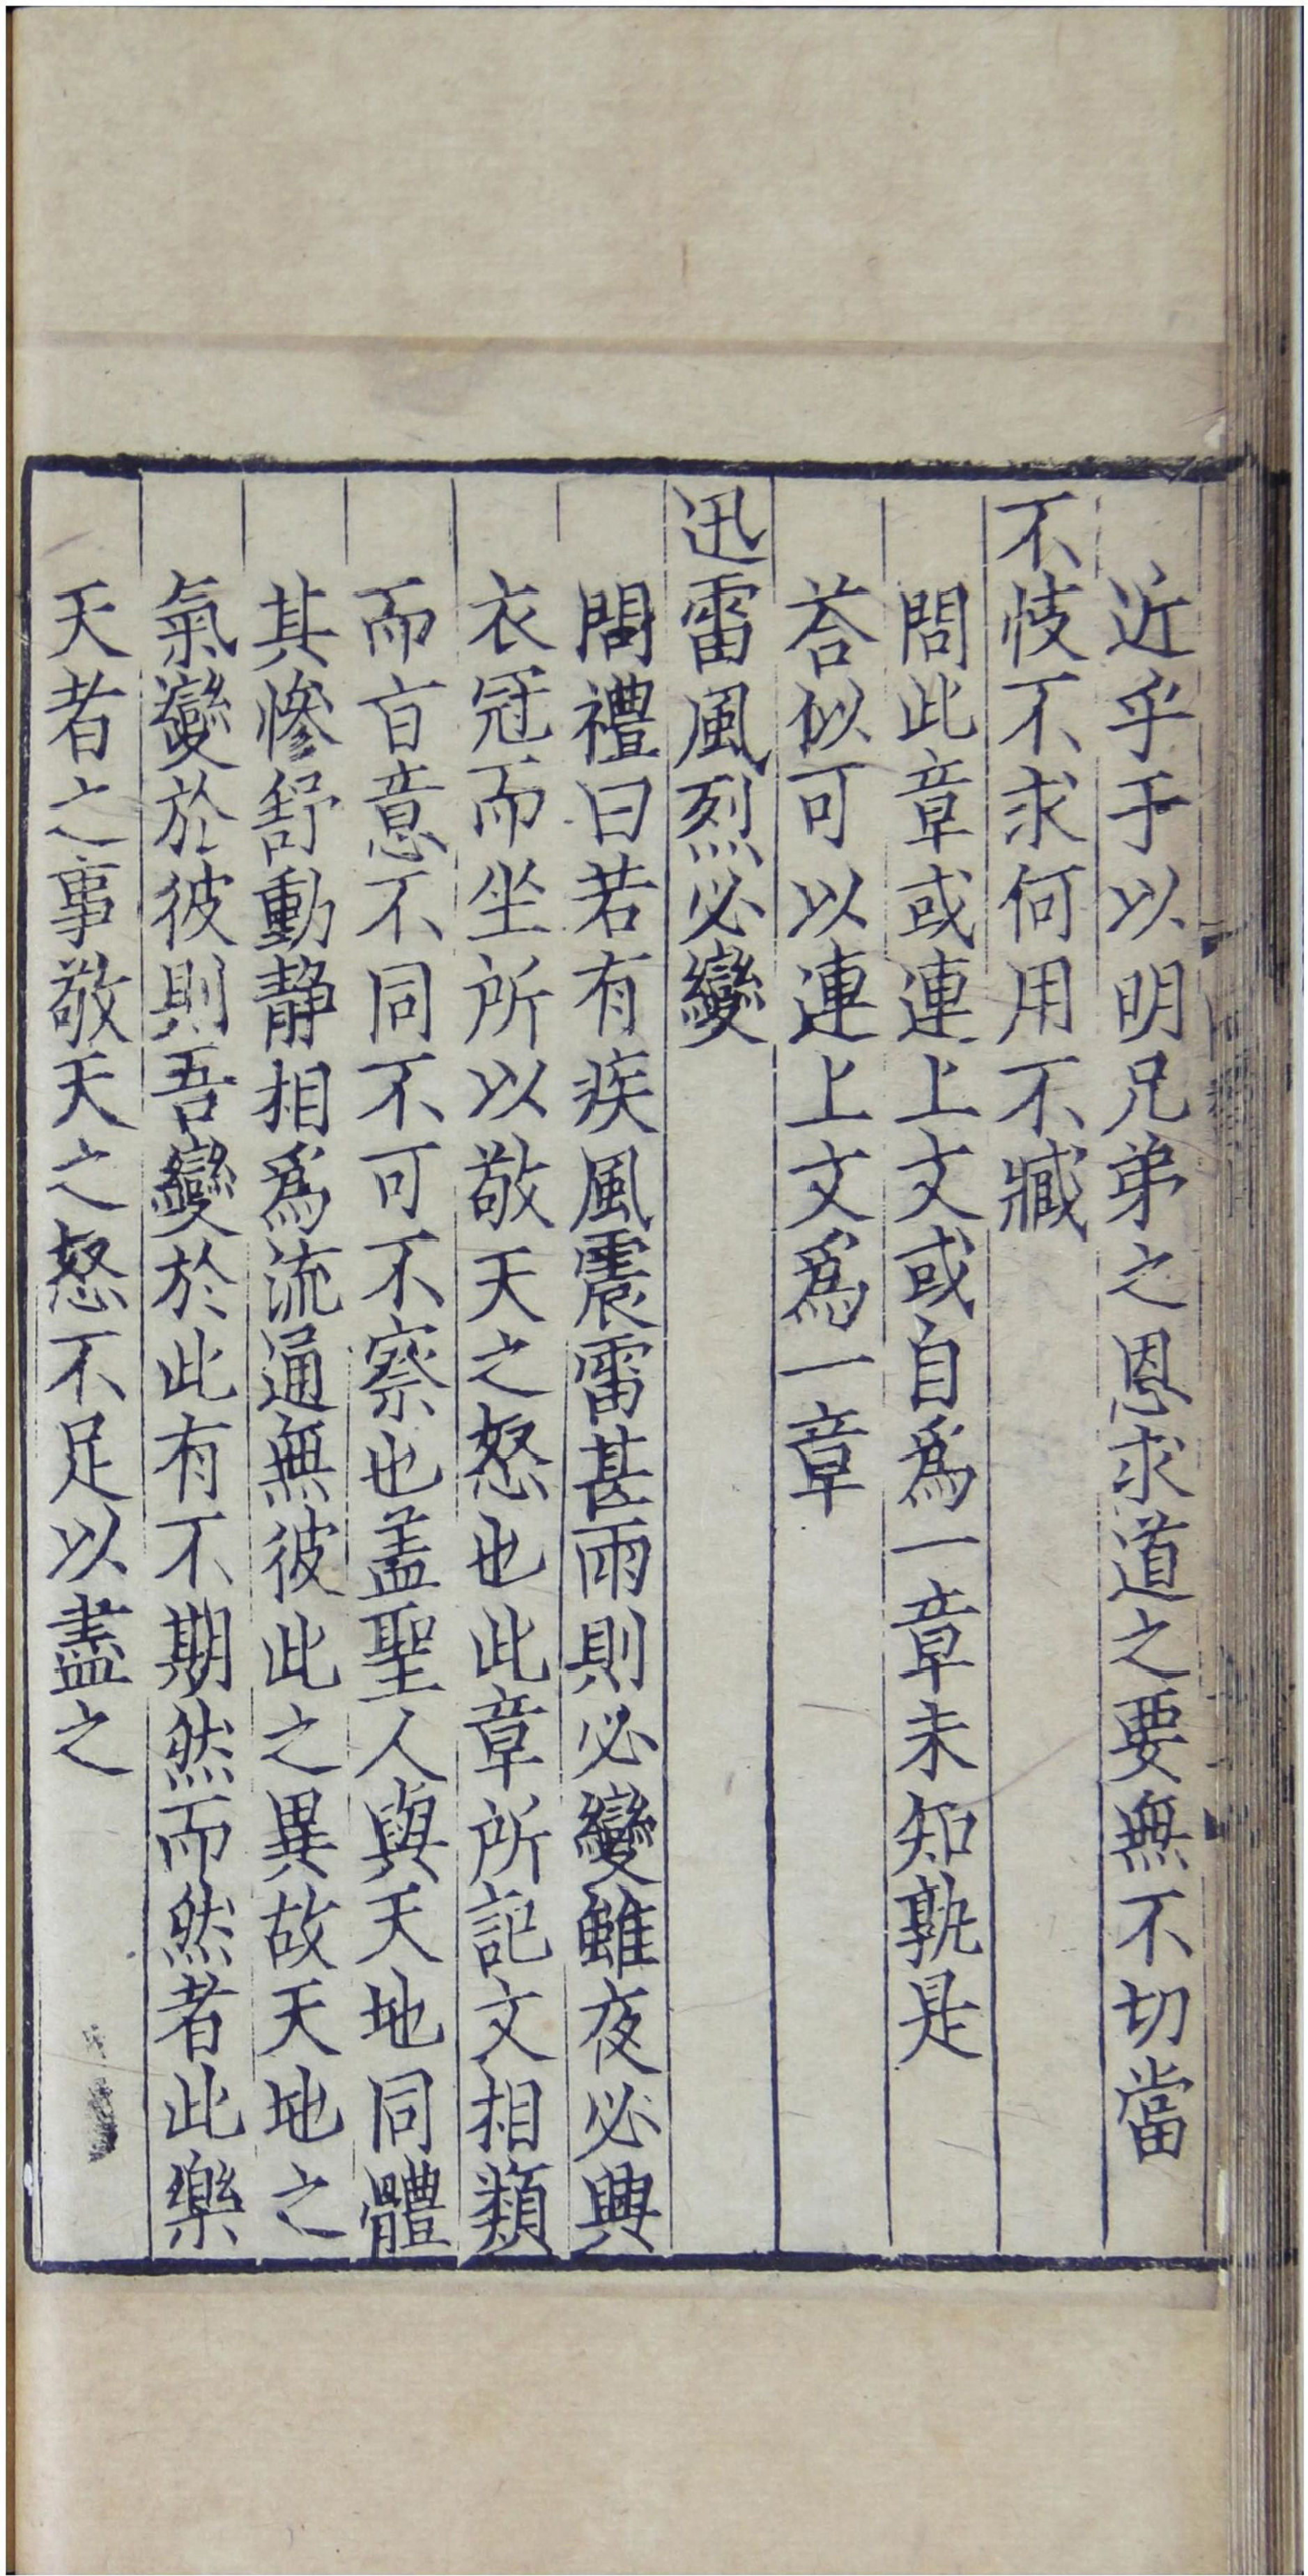 近乎于以明兄弟之恩求道之要無不切當
不忮不求何用不臧
問此章或連上文或自爲一章未知孰是
荅似可以連上文爲一章
迅雷風烈必變
問禮曰若有疾風震雷甚雨則必變雖夜必興
衣冠而坐所以敬天之怒也此章所記文相類
而㫖意不同不可不察也盖聖人與天地同體
其慘舒動静相爲流通無彼此之異故天地之
氣變於彼則吾變於此有不期然而然者此樂
天者之事敬天之怒不足以盡之